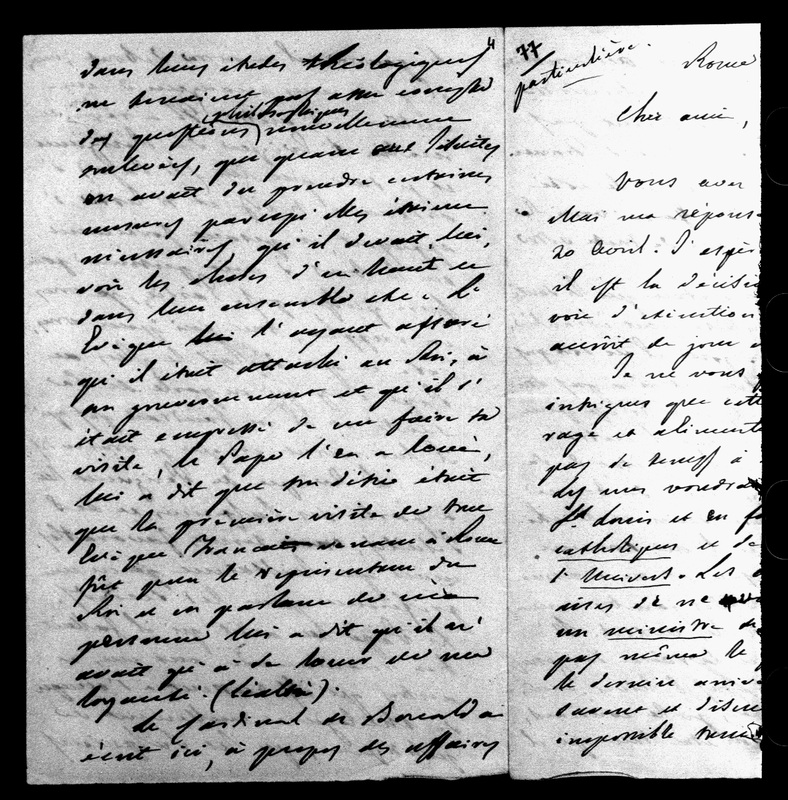 4
dans leurs études théologiques
ne tenaient pas assez compte
des questions philosophiques nouvellement
soulevées, que quant aux Jésuites
on avait du prendre certaines
mesures parcequ'elles étaient
nécessaires qu'il devait, lui,
voir les choses d'en haut et
dans leur ensemble etc. Le
Evêque lui l'ayant assuré
qu'il était attaché au Roi, à
son gouvernement et qu'il s'
était empressé de me faire sa
visite, le Pape l'en a loué,
lui a dit que son désir était
que la première visite de tout
Evêque Français venant à Rome
fût pour le représentant du
Roi et en parlant de ma
personne lui a dit qu'il n'
avait qu'à se louer de ma
loyauté. (lealtà).
Le Cardinal de Bonald a
écrit ici, à propos des affaires
77
particulière.
Rome
Cher ami,
Vous avez
Mai ma réponse
20 avril. J'espère
il est la décisi
voie d'exécution
accroît de jour
Je ne vous
intrigues que cette
rage et alimente
pas de temps à
des uns voudra
St Louis et en f
catholiques et de
l'Univers. Les
aises de ne
un ministre de
pas même le
le dernier arriv
savent et disent
impossible